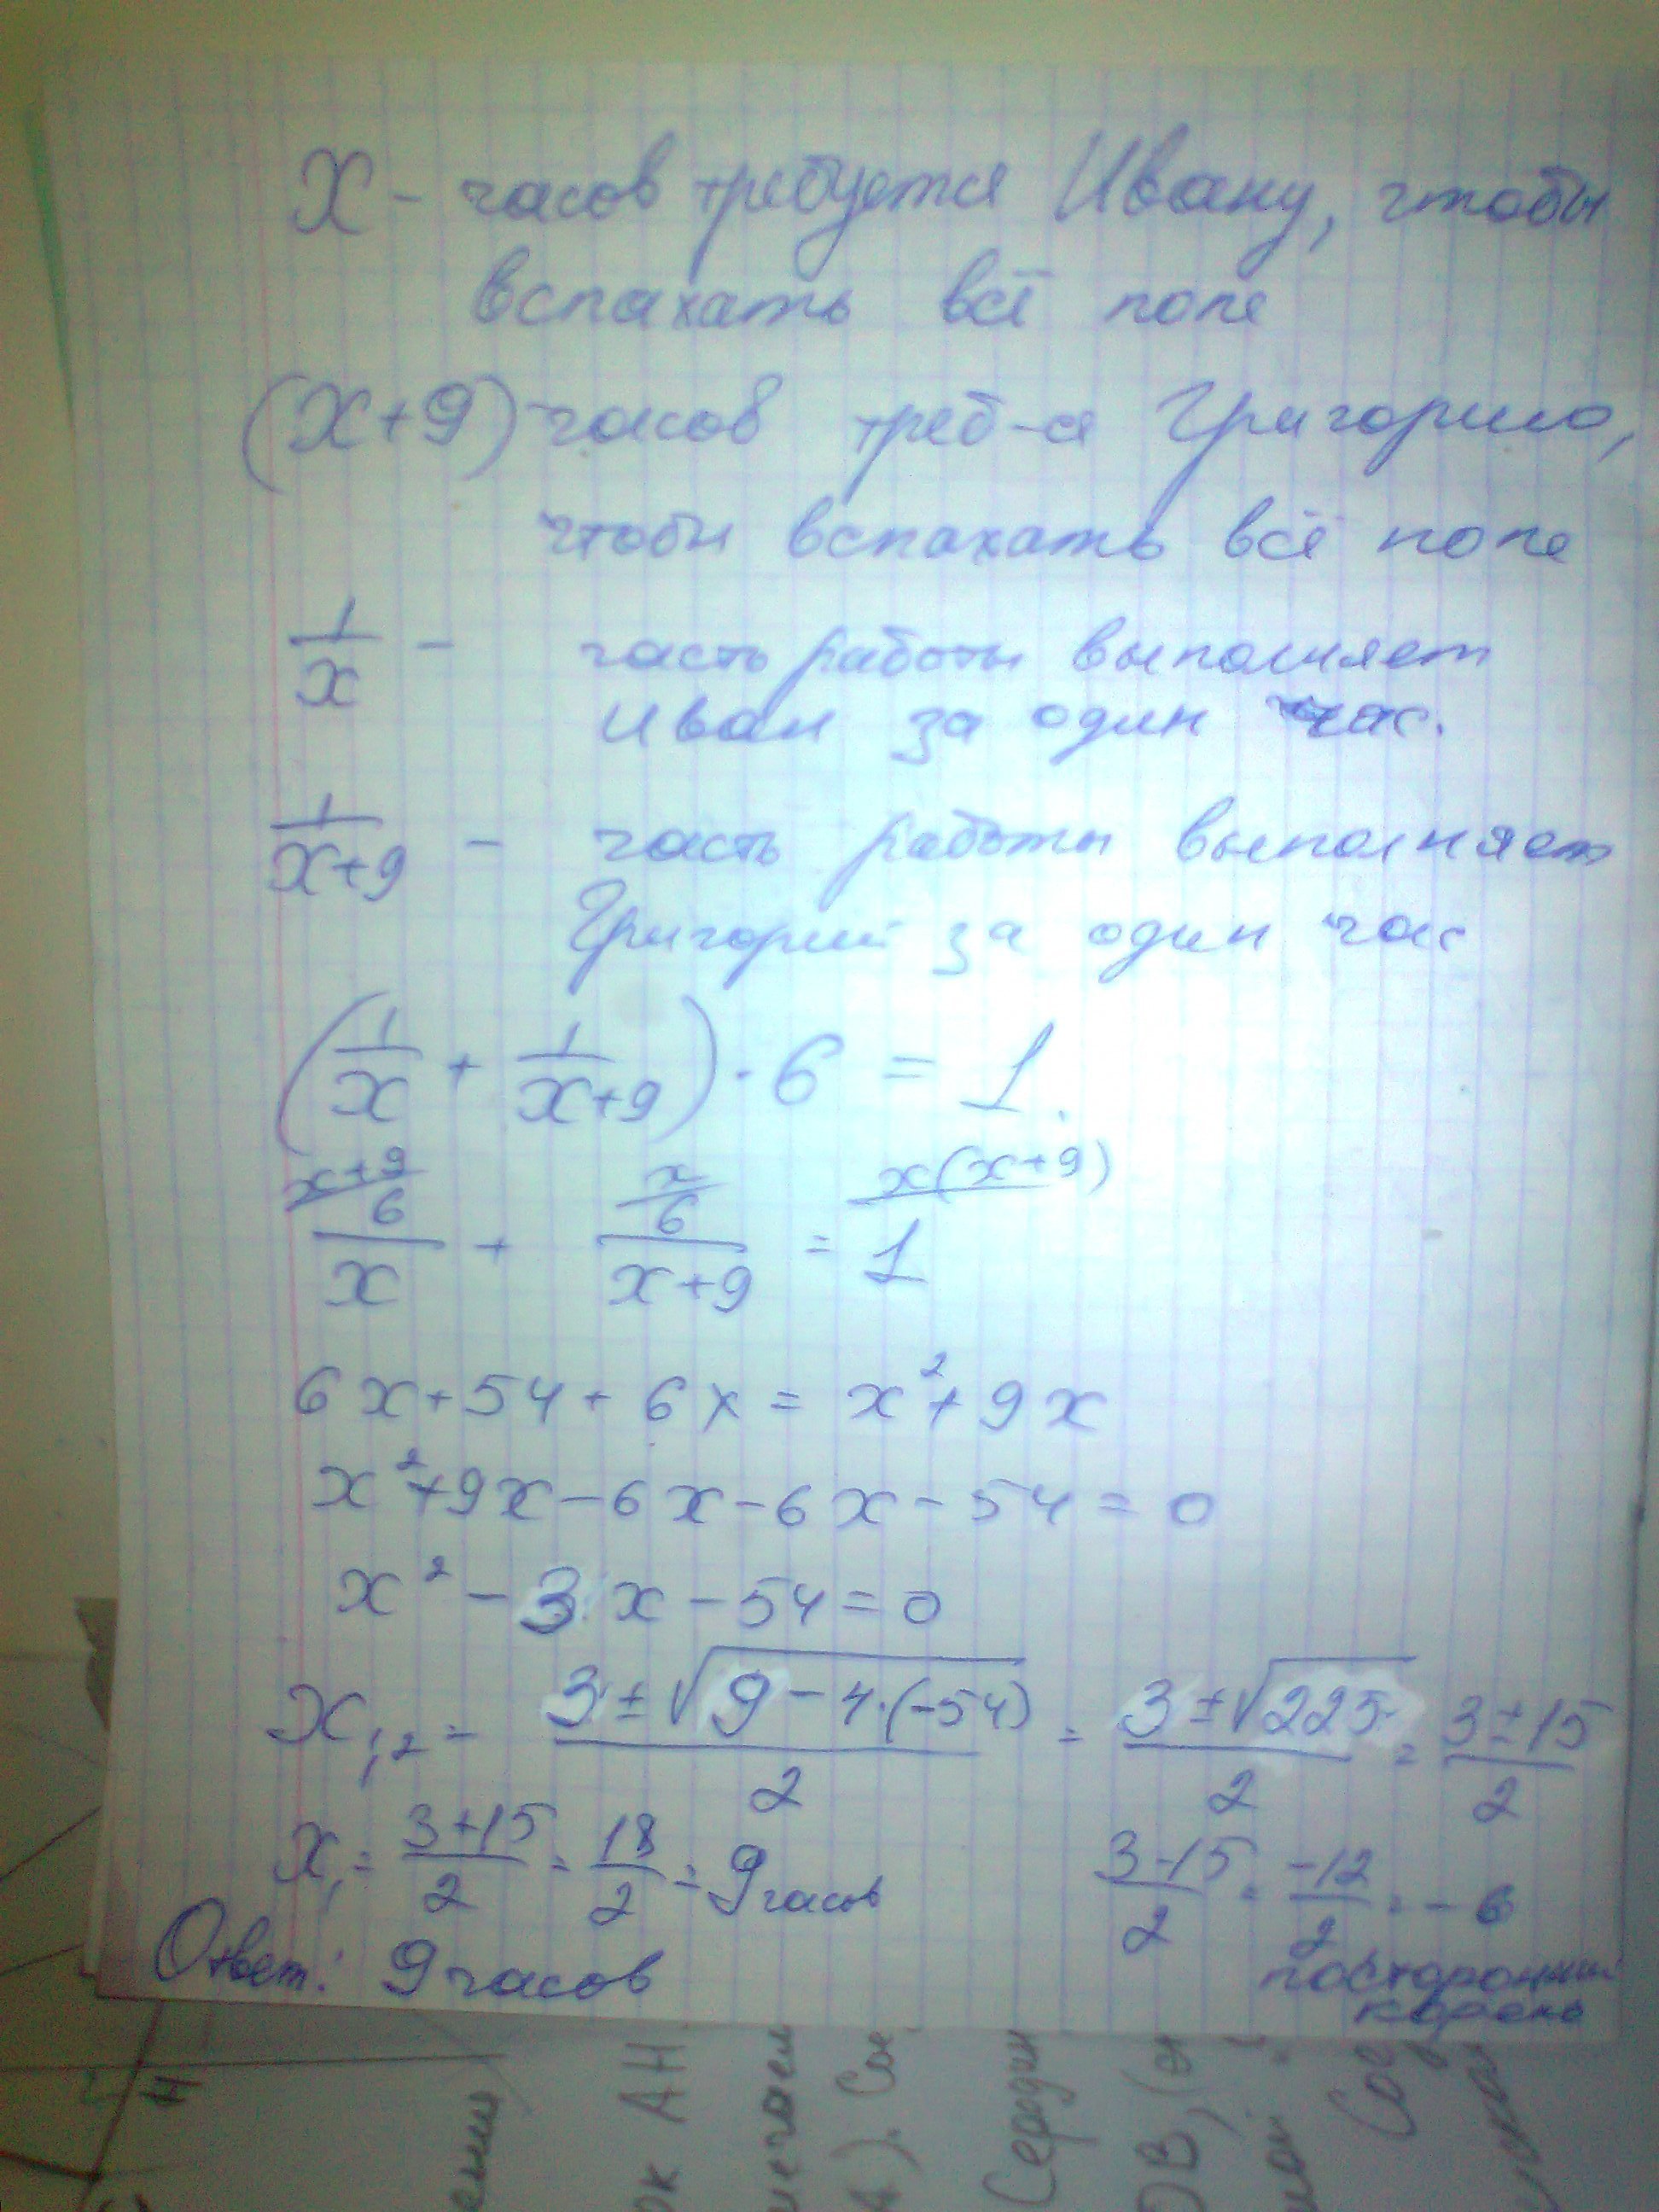 x - часов требуется Ивану, чтобы
вспахать всё поле
(x+9) часов треб-ся Григорию,
чтобы вспахать всё поле
1/x - часть работы выполняет
Иван за один час.
1/(x+9) - часть работы выполняет
Григорий за один час
(1/x + 1/(x+9)) · 6 = 1.
x+9 x x(x+9)
6/x + 6/(x+9) = 1
6x+54+6x = x²+9x
x²+9x-6x-6x-54=0
x²-3x-54=0
x1,2 = (3±√(9-4·(-54)))/2 = (3±√225)/2 = (3±15)/2
x1 = (3+15)/2 = 18/2 = 9 часов (3-15)/2 = -12/2 = -6
Ответ: 9 часов посторонний
корень
H
ок АН
Сое
Середин
ОВ,
Сое